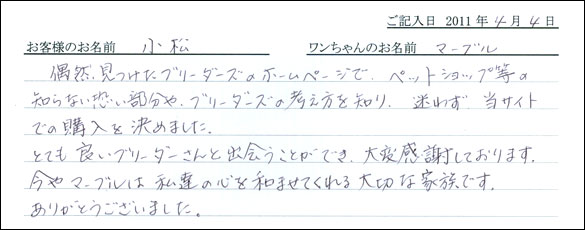 ご記入日 2011年4月4日
お客様のお名前 小松 ワンちゃんのお名前 マーブル
偶然、見つけたブリーダーズのホームページで、ペットショップ等の
知らない恐い部分や、ブリーダーズの考え方を知り、迷わず当サイト
での購入を決めました。
とても良いブリーダーさんと出会うことができ、大変感謝しております。
今やマーブルは私達の心を和ませてくれる大切な家族です。
ありがとうございました。